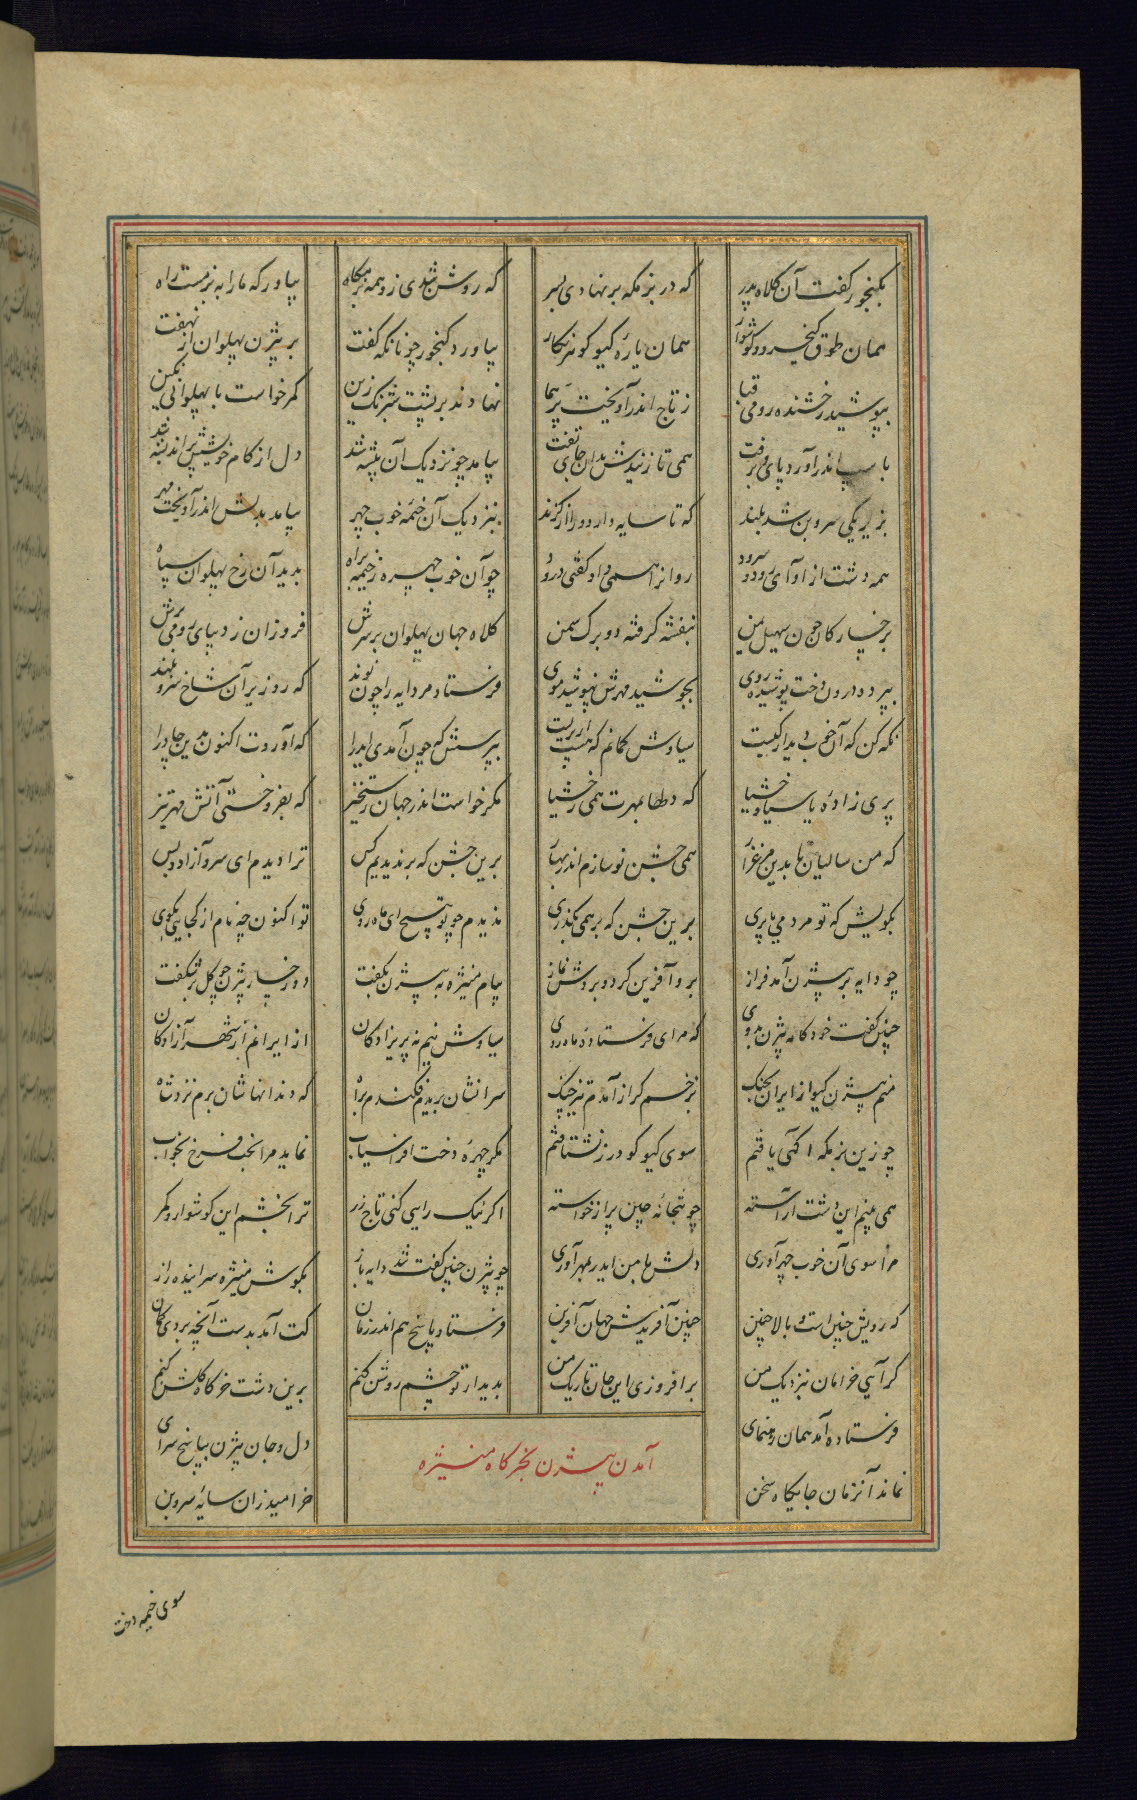 بگنجور گفت آن کلاه پدر که در بزمگه برنهادی بسر که روشن شدی زو همه بزمگاه بیاور که ما را به بزمست راه
همان طوق کیخسرو و گوشوار همان یارهٔ گیو گوهرنگار بیاورد گنجور چونانکه گفت بر بیژن پهلوان از نهفت
بپوشید رخشنده رومی قبا ز تاج اندر آویخت پر هما نهادند بر پشت شبرنگ زین کمر خواست با پهلوانی نگین
باسپ اندر آورد پای و برفت همی تا زنیدش بدان جای تفت بیامد چو نزدیک آن بیشه شد دل از کام خویشش پراندیشه شد
بزیر یکی سروبن شد بلند که تا سایه دارد ورا از گزند بنزدیک آن خیمه خوب چهر بیامد بدلش اندر آویخت مهر
همه دشت از آوای رود و سرود روانرا همی داد گفتی درود چو آن خوب چهره ز خیمه براه بدید آن رخ پهلوان سپاه
برخسارگان چون سهیل یمن بنفشه گرفته دو برگ سمن کلاه جهان پهلوان بر سرش فروزان ز دیبای رومی برش
بپرده درون دخت پوشیده روی بجوشید مهرش نپوشید موی فرستاد مر دایه را چون نوند که رو زیر آن شاخ سرو بلند
نگه کن که آن خوب دیدار کیست سیاوش گمانم که هست ار پریست بپرسش که چون آمدی ایدرا که آوردت اکنون بدین جا درا
پری زادهٔ یا سیاوخشیا که دلها بمهرت همی رخشیا مگر خواست اندر جهان رستخیز که بفروختی آتش مهر تیز
که من سالیان تا بدین مرغزار همی جشن نو سازم اندر بهار برین جشن که بر ندیدیم کس ترا دیدم ای سرو آزاد و بس
بگویش که تو مردمی یا پری برین جشن که بر همی بگذری ندیدم چو تو هیچ ای ماه روی تو اکنون چه نام از کجایی بگوی
چو دایه بر بیژن آمد فراز برو آفرین کرد و بردش نماز پیام منیژه به بیژن بگفت دو رخسار بیژن چو گل بر شکفت
چنین گفت خودکامه بیژن بدوی که مر ای فرستادهٔ ماه روی سیاوش نیم نه پریزادگان از ایرانم از شهر آزادگان
منم بیژن گیو از ایران بجنگ بزخم گراز آمدم تیز چنگ سرانشان بریدم فکندم براه که دندانهاشان برم نزد شاه
چو زین بزمگه آگهی یافتم سوی گیو گودرز نشتافتم مگر چهرهٔ دخت افراسیاب نماید مرا بخت فرخ بخواب
همی بینم این دشت آراسته چو بتخانهٔ چین پر از خواسته اگر نیک رایی کنی تاج زر ترا بخشم این گوشوار و کمر
مرا سوی آن خوب چهر آوری دلش با من ایدر بمهر آوری چو بیژن چنین گفت شد دایه باز بگوش منیژه سراینده راز
که رویش چنین است و بالا چنین چنین آفریدش جهان آفرین فرستاد پاسخ هم اندر زمان کت آمد بدست آنچه بردی گمان
گر آیی خرامان بنزدیک من برافروزی این جان تاریک من بدیدار تو چشم روشن کنم برین دشت خرگاه گلشن کنم
فرستاده آمد همان رهنمای دل و جان بیژن بپاسخ سرای
آمدن بیژن بخرگاه منیژه
نماند آنزمان جایگاه سخن خرامید زان سایهٔ سروبن
سوی خیمه دخت